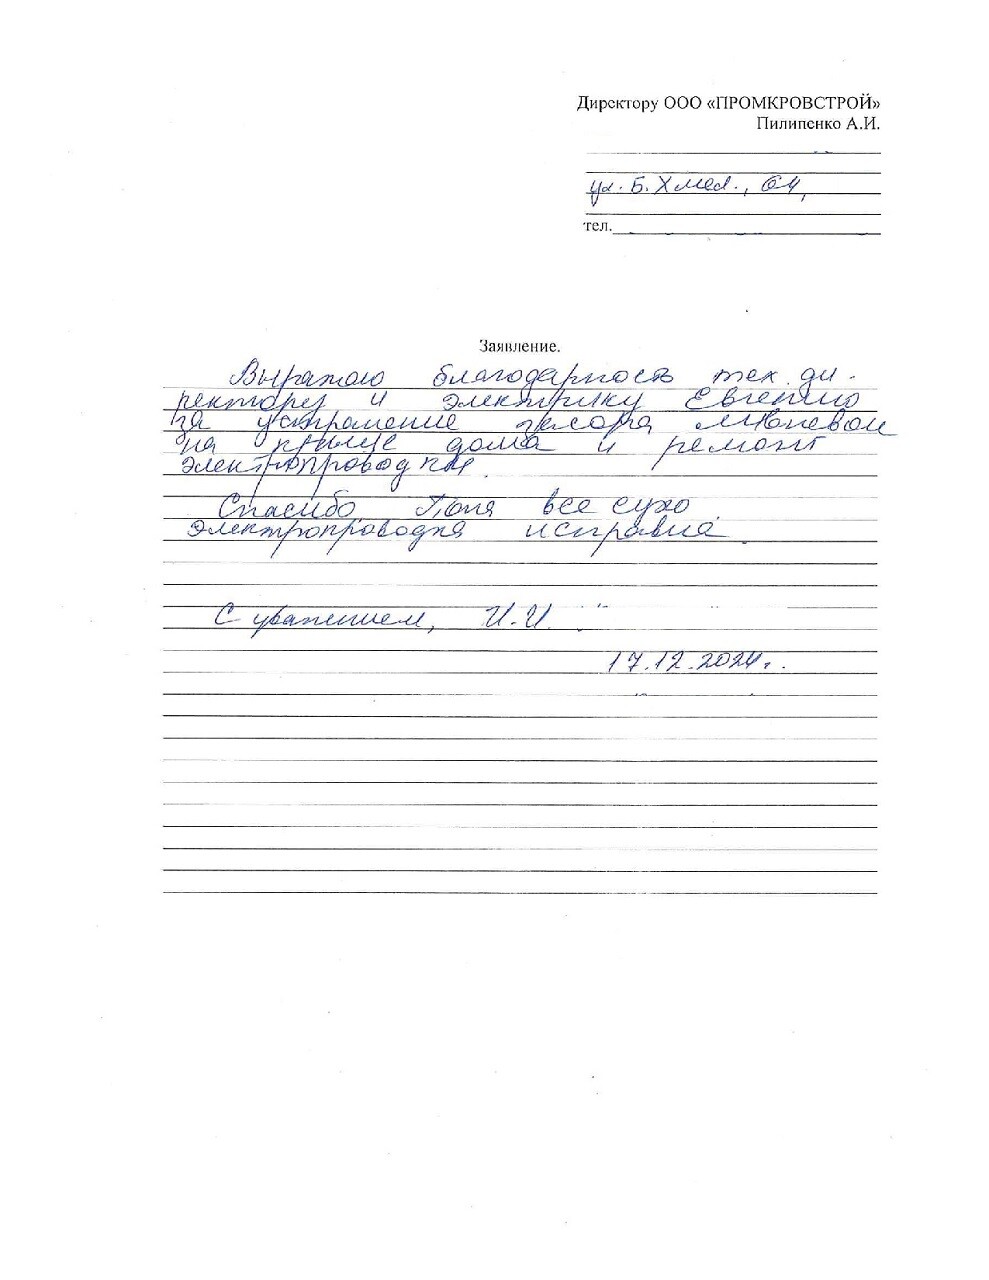 Директору ООО «ПРОМКРОВСТРОЙ»
Пилипенко А.И.
ул. Б. Хмел., 64,
тел.
Заявление.
Выражаю благодарность тех. ди-
ректору и электрику Евгению
за устранение засора ливневой
на крыше дома и ремонт
электропроводки.
Спасибо Пока все сухо
электропроводка исправна.
С уважением, И.И.
17.12.2024г.